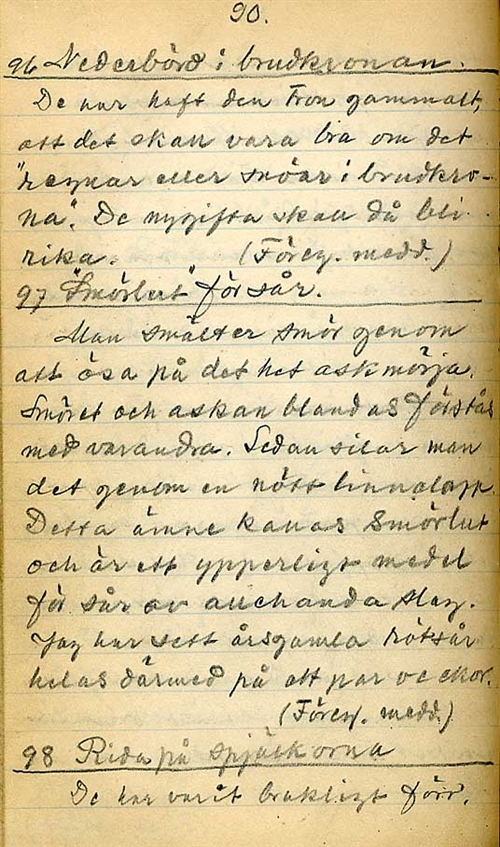 90.
96 Nederbörd i brudkronan.
De har haft den tron gammalt,
att det skall vara bra om det
"regnar eller snöar i brudkro-
na". De nygifta skall då bli
rika. (Föreg. medd.)
97 "Smörlut" för sår.
Man smälter smör genom
att ösa på det het askmörja.
Smöret och askan blandas förstås
med varandra. Sedan silar man
det genom en nött linnelapp.
Detta ämne kallas Smörlut
och är ett ypperligt medel
för sår av allehanda slag.
Jag har sett årsgamla rötsår
helas därmed på ett par veckor.
(Föreg. medd.)
98 Rida på spjäckorna
De har varit brukligt förr,